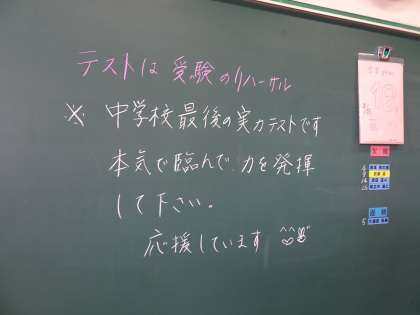 テストは受験のリハーサル
※ 中学校最後の実力テストです
本気で臨んで力を発揮
して下さい。
応援しています